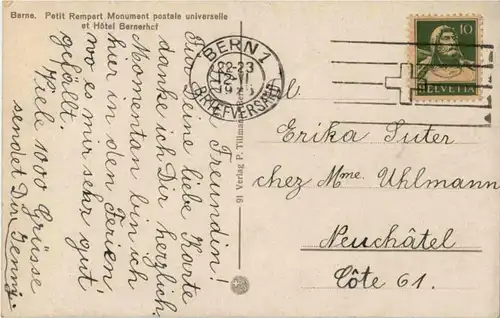 Berne. Petit Rempart Monument postale universelle
et Hôtel Bernerhof
Liebe Freundin!
Für Deine liebe Karte
danke ich Dir herzlich.
Momentan bin ich
hier in den Ferien
wo es mir sehr gut
gefällt.
Viele 1000 Grüsse
sendet Dir Jenny.
91 Verlag P. Tillmann
BERN 1
22-23
BRIEFVERSAND
10
HELVETIA
Erika Suter
chez Mme. Uhlmann
Neuchâtel
Côte 61.